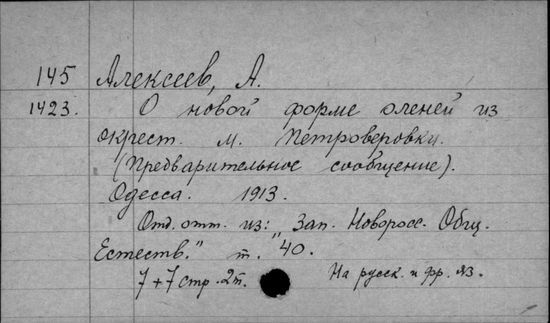 145 Алексеев, А.
1423. О новой форме оленей из
окрест. м. Петроверовки.
(Предварительное сообщение).
Одесса. 1913.
Отд. отт. из: "Зап. Новоросс. Общ.
Естеств." т. 40.
7+7 стр. 2 т. На русск. и фр. яз.